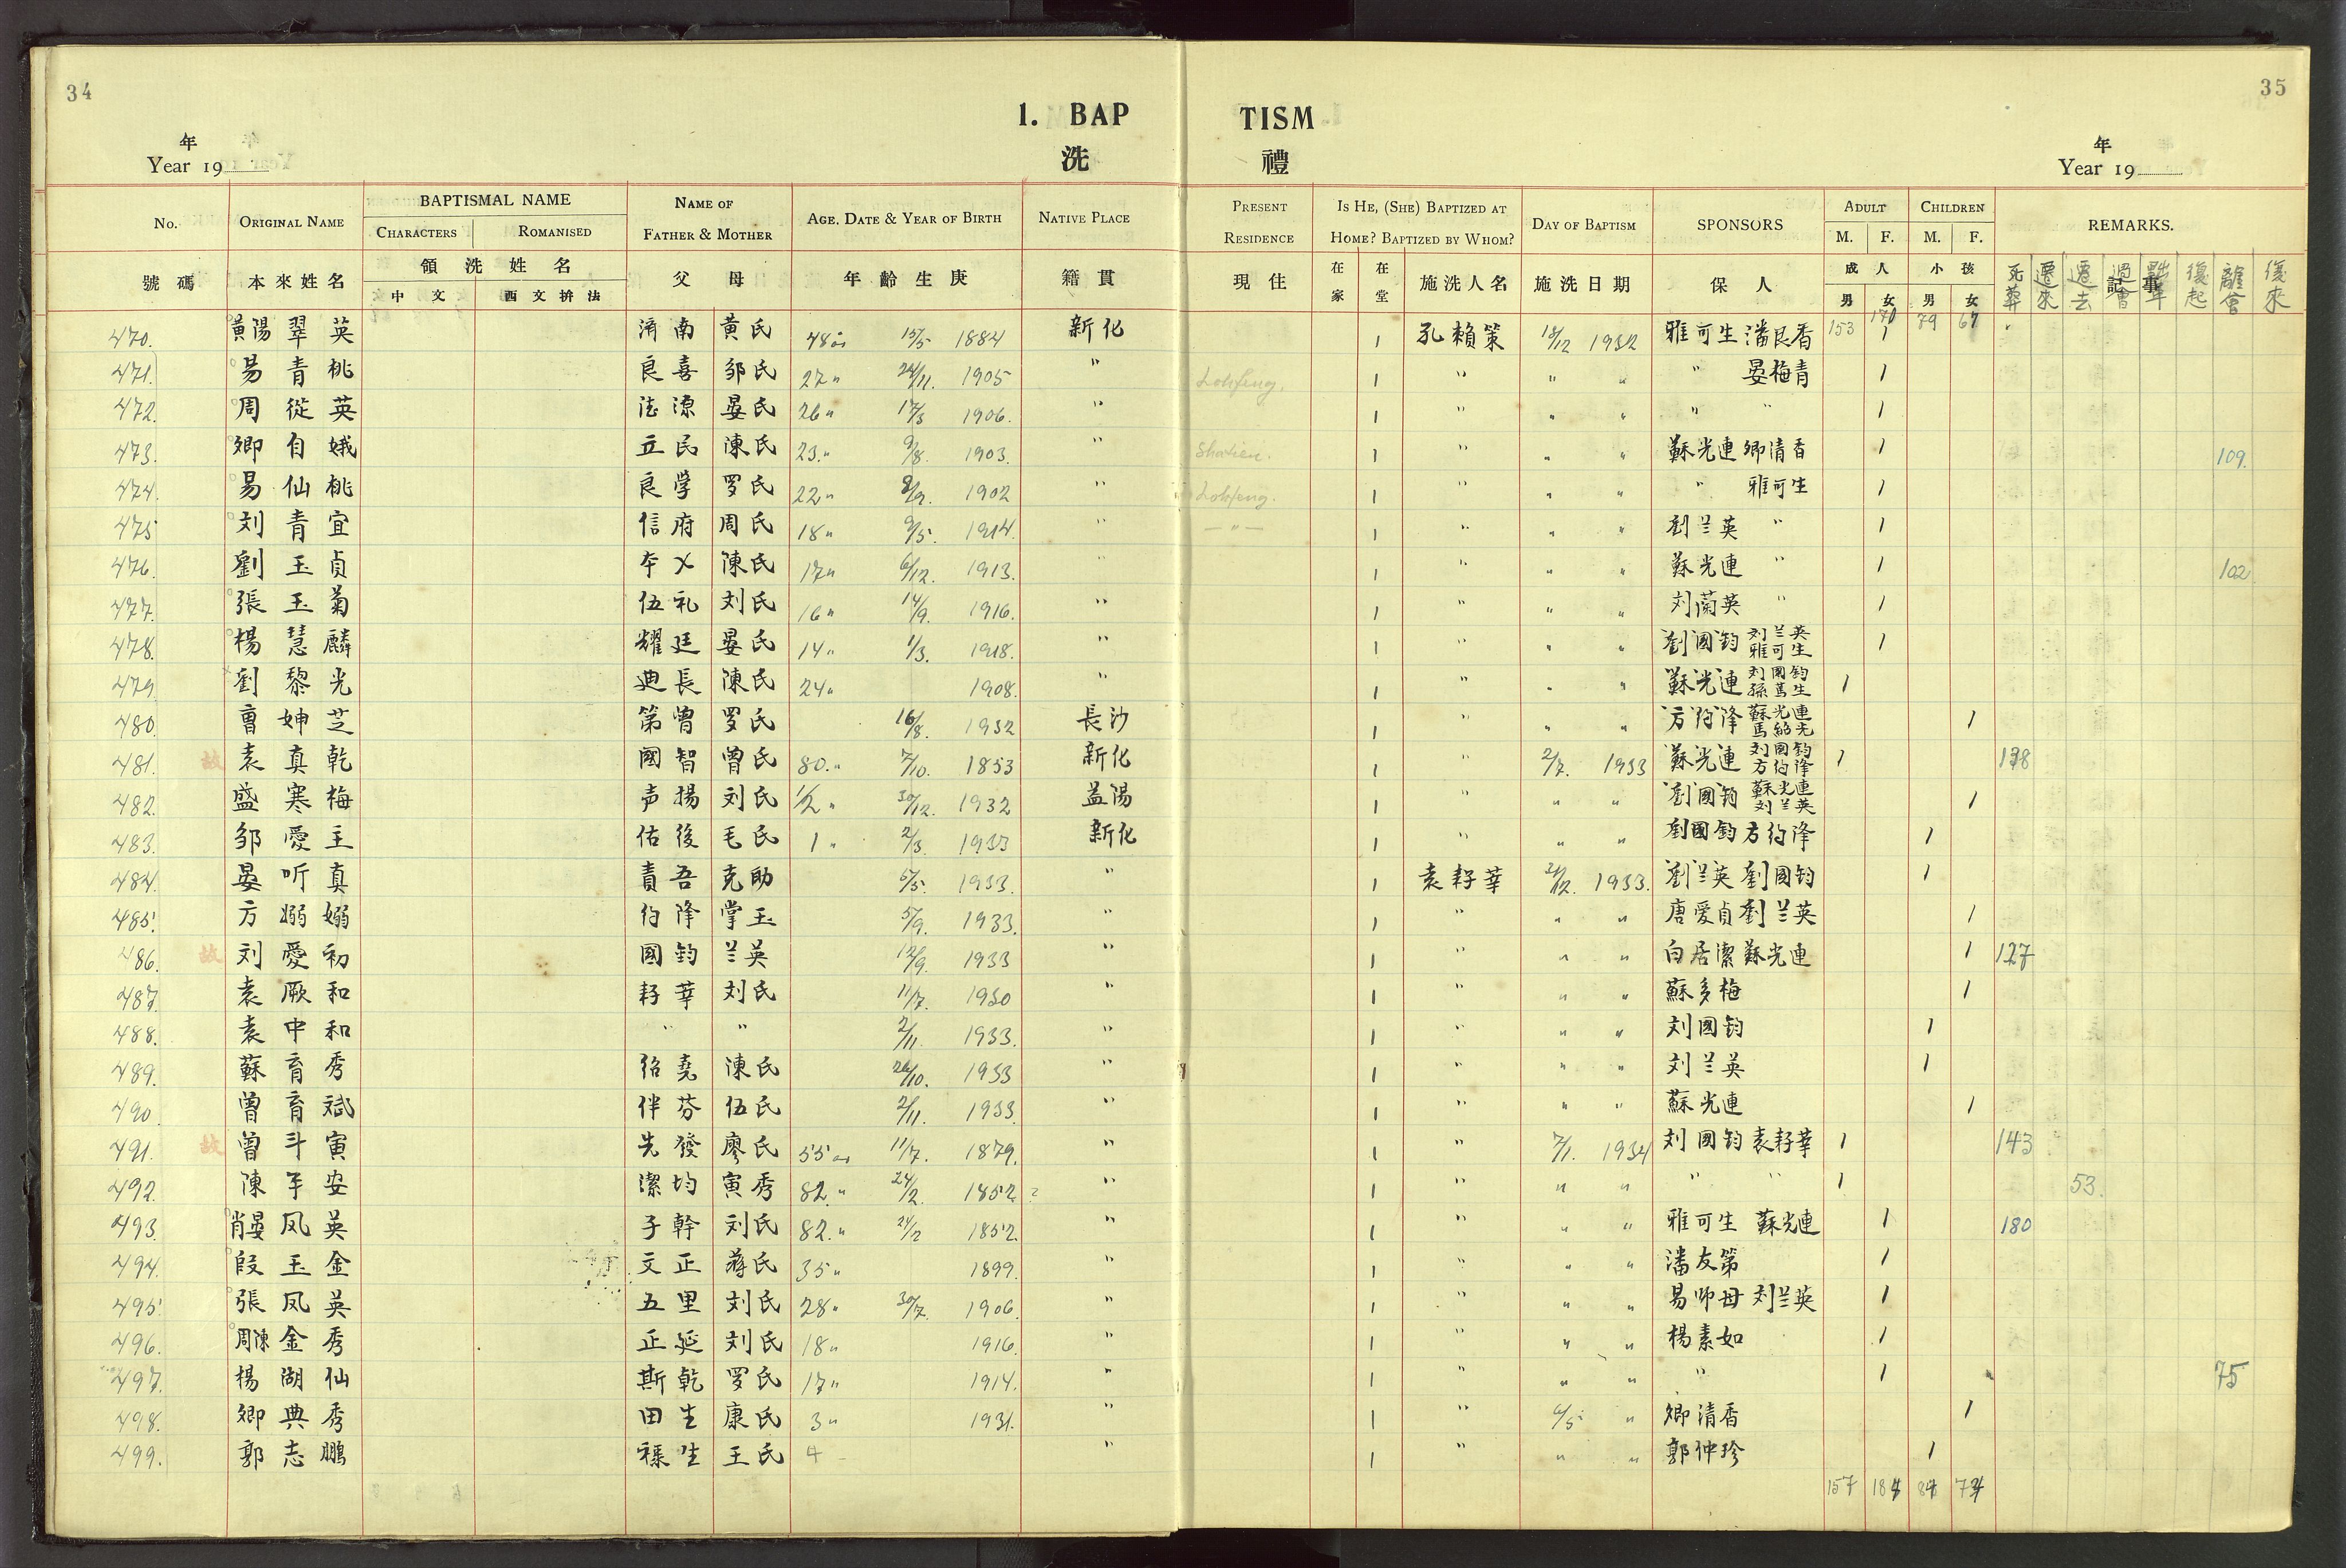 34
35
1. BAP
TISM
年
Year 19
洗
禮
年
Year 19
No. ORIGINAL NAME BAPTISMAL NAME CHARACTERS ROMANISED NAME OF FATHER & MOTHER AGE. DATE & YEAR OF BIRTH NATIVE PLACE PRESENT RESIDENCE IS HE, (SHE) BAPTIZED AT HOME? BAPTIZED BY WHOM? DAY OF BAPTISM SPONSORS ADULT M. F. CHILDREN M. F. REMARKS.
號碼 本來姓名 領洗姓名 中文 西文拚法 父 母 年齡生庚 籍貫 現住 在家 在堂 施洗人名 施洗日期 保人 成人 男 女 小孩 男 女 記事 死葬 遷來 遷去 復起 離會 復來
470. 黃陽翠英 濟南 黃氏 48 15/5 1884 新化 1 孔賴策 18/12 1932 雅可生 潘良香 153 170 1 79 67
471. 易青桃 良喜 邹氏 27 " 24/11. 1905 " Lohfeng. 1 " " " " 晏梅青 1
472. 周從英 法源 晏氏 26 " 17/3 1906. " 1 " " " " " 1
473. 卿自娥 立民 陳氏 23. " 9/8. 1903. " 1 " " " 蘇光連 卿清香 1 109.
474. 易仙桃 良学 罗氏 22 " 8/9. 1902 " Lohfeng. 1 " " " " 雅可生 1
475 刘青宜 信府 周氏 18 " 9/5. 1914. " — " — 1 " " " 劉兰英 " 1
476. 劉玉貞 本 陳氏 17 " 6/12. 1913. " 1 " " " 蘇光連 " 1 102
477. 張玉菊 伍礼 刘氏 16 " 14/9. 1916. " 1 " " " 刘蘭英 " 1
478. 楊慧麟 耀廷 晏氏 14 " 1/3. 1918. " 1 " " " 劉國鈞 刘兰英 雅可生 1
479. 劉黎光 迪長 陳氏 24 " 1908. " 1 " " " 蘇光連 刘國鈞 孫篤生 1
480. 曹妽芝 第曾 罗氏 16/8. 1932 長沙 1 " " " 方約降 蘇光連 1
481. 故 袁真乾 國智 曾氏 80. " 7/10. 1853 新化 1 " 2/7. 1933 蘇光連 刘國鈞 方約降 1 178
482. 盛寒梅 声揚 刘氏 1/2 " 30/12. 1932 益陽 1 " " " 劉國鈞 蘇光連 刘兰英 1
483. 邹愛主 佑後 毛氏 1 " 2/3. 1933 新化 1 " " " 劉國鈞 方約降 1
484. 晏听真 責吾 克助 5/5. 1933. " 1 袁籽莘 24/12. 1933. 劉兰英 劉國鈞 1
485. 方嫋嫋 約降 掌玉 5/9. 1933. " 1 " " " 唐愛貞 劉兰英 1
486. 故 刘愛初 國鈞 兰英 12/9. 1933 " 1 " " " 白居潔 蘇光連 1 127
487. 袁厥和 籽莘 刘氏 11/7. 1930 " 1 " " " 蘇多梅 1
488. 袁中和 " " 2/11. 1933. " 1 " " " 刘國鈞 1
489. 蘇育秀 紹堯 陳氏 26/10. 1933 " 1 " " " 刘兰英 1
490. 曾育斌 伴芬 伍氏 2/11. 1933. " 1 " " " 蘇光連 1
491. 故 曾斗寅 先發 廖氏 55 11/7. 1879. " 1 " 7/1. 1934 刘國鈞 袁籽莘 1 143
492. 陳平安 潔均 寅秀 82 " 24/2. 1852 ? " 1 " " " " " 1 53.
493. 肖晏凤英 子幹 刘氏 82. " 24/2 1852. " 1 " " " 雅可生 蘇光連 1 180
494. 段玉金 文正 蔣氏 35 " 1899. " 1 " " " 潘友第 1
495. 張凤英 五里 刘氏 28 " 30/7. 1906 " 1 " " " 易师母 刘兰英 1
496. 周陳金秀 正延 刘氏 18 " 1916. " 1 " " " 楊素如 1
497. 楊湖仙 斯乾 罗氏 17 " 1914. " 1 " " " " 1 75
498. 卿典秀 田生 康氏 3 " 1931. " 1 " 6/5. " 卿清香 1
499. 郭志鵬 禥生 王氏 4 " 1 " " " 郭仲珍 1
157 184 84 74